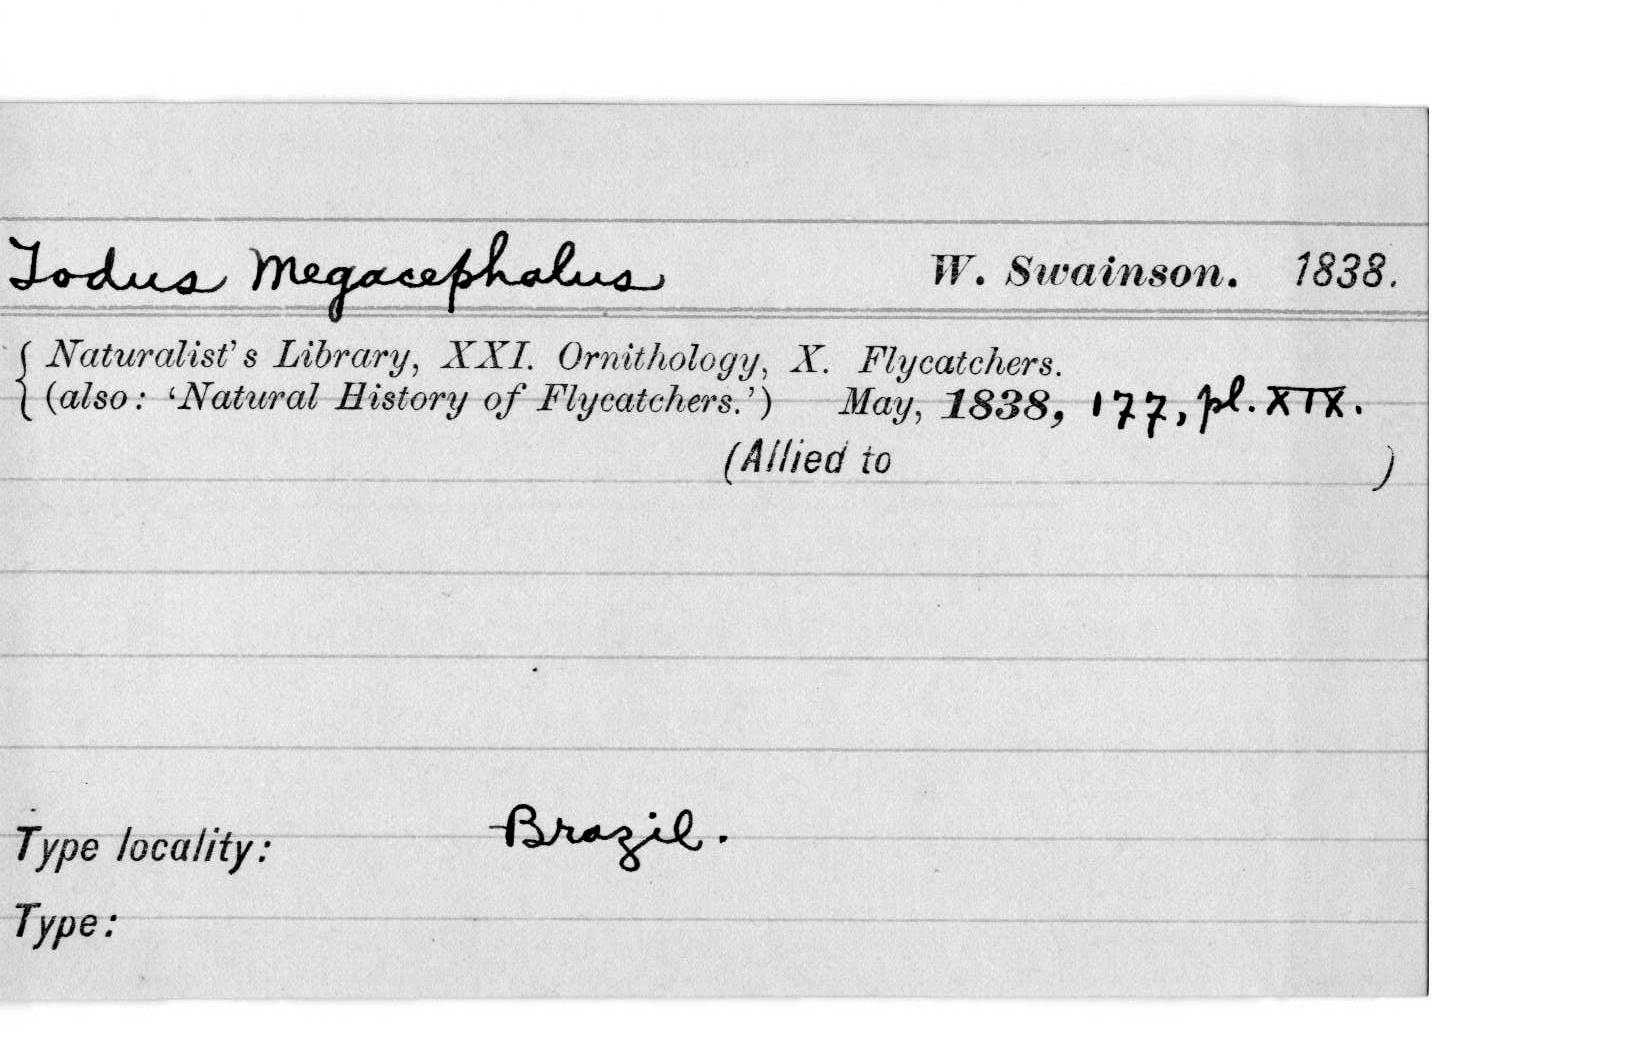 Todus Megacephalus W. Swainson. 1838.
Naturalist's Library, XXI. Ornithology, X. Flycatchers.
(also: 'Natural History of Flycatchers.') May, 1838, 177, pl. XIX.
(Allied to )
Type locality: Brazil.
Type: